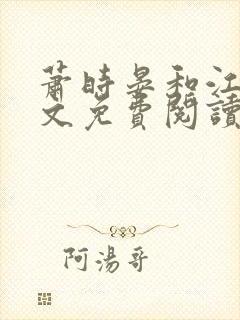 蕭時晏和江
文免費閱讀
阿湯哥